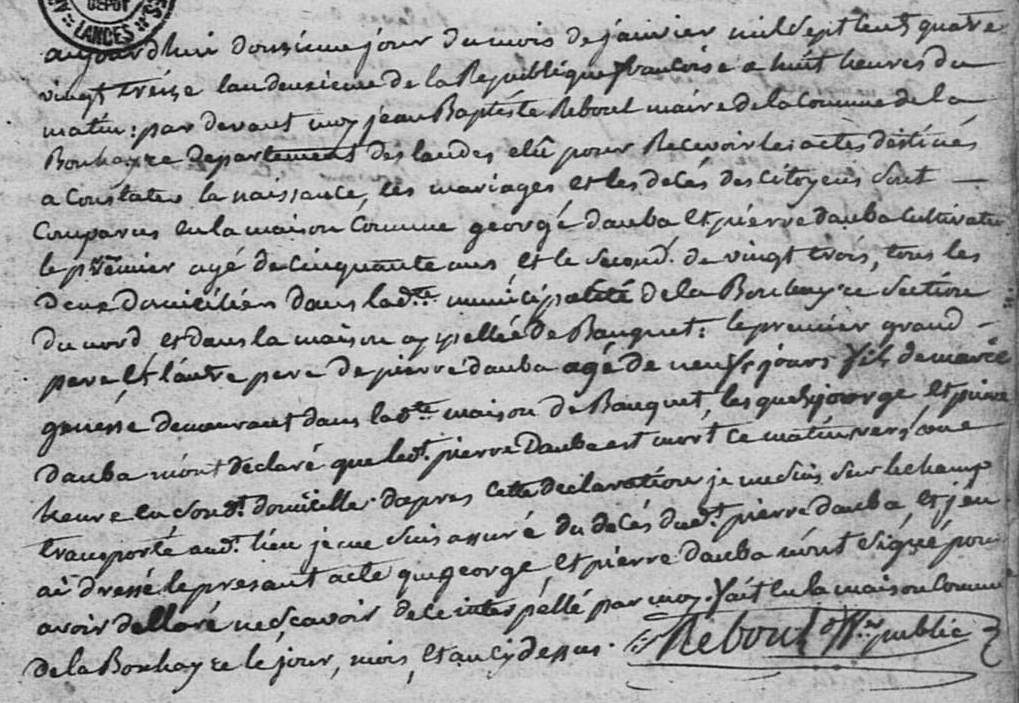 DEPOT
LANDES
aujourdhui douzieme jour du mois de janvier mil sept cent quatre
vingt treize lan deuxieme de la Republique francoise a huit heures du
matin: par devant moy jean Baptiste Reboul maire de la Commune de la
Bouhayre Departement des landes elû pour Recevoir les actes destinés
a Constater la naissance, les mariages et les decés des Citoyens sont —
Comparus en la maison Commune george dauba et pierre dauba Cultivateurs
le premier agé de Cinquante ans, et le second. de vingt trois, tous les
deux domiciliés dans lad.te municipalité de la Bouhayre section
du nord et dans la maison appellée de Bauquet: le premier grand —
pere et l'autre pere de pierre dauba agé de neuf jours fils de marie
demeurant dans lad.te maison de Bauquet, les quels george et pierre
dauba m'ont declaré que led.t pierre Dauba est mort ce matin vers une
heure en sond.t domicille. dapres cette declaration je me suis sur le champ
transporté aud.t lieu je me suis assuré du decés dud.t pierre dauba, et j'en
ai dressé le presant acte que george, et pierre dauba n'ont signé pour
avoir declaré ne sçavoir de ce interpellé par moy. fait en la maison Commune
de la Bouhayre le jour, mois, et an cy dessus. Reboul off.er public